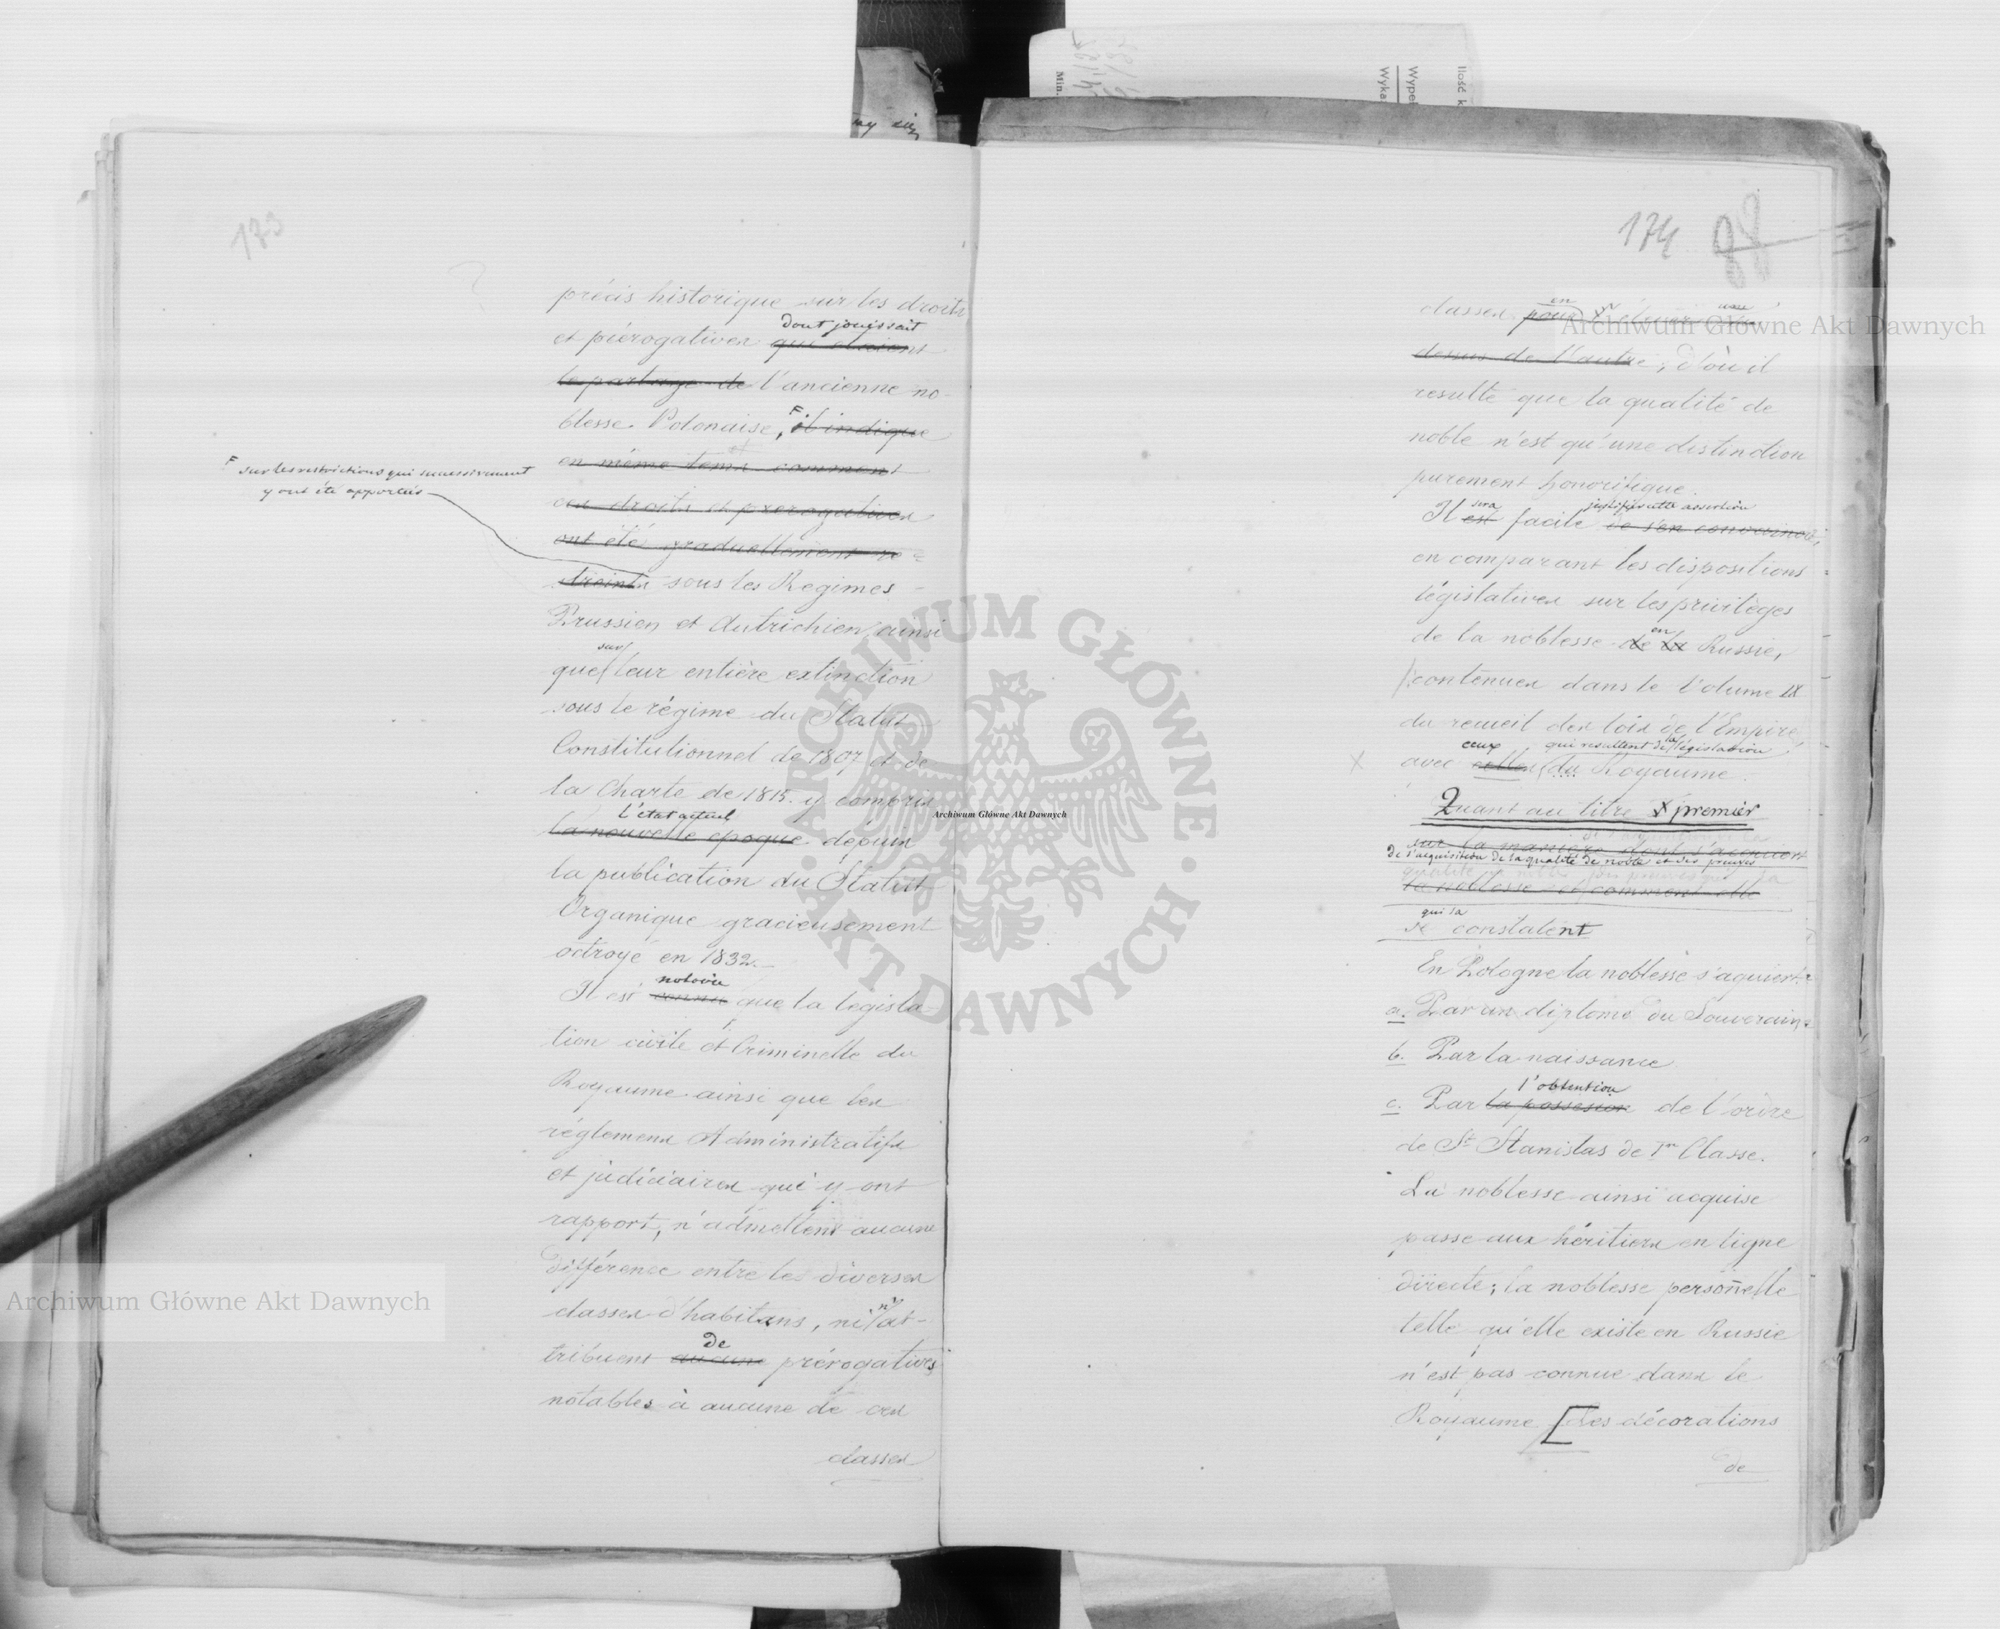 173
précis historique sur les droits
dont jouissait
et prérogatives qui etaient
le partage de l'ancienne no-
blesse Polonaise, F il indique
en même tems comment
ces droits et prerogatives
F sur les restrictions qui successivement
y ont été apportées
ont été graduellement re-
streints sous les Regimes
Prussien et Autrichien, ainsi
sur
que leur entière extinction
sous le régime du Statut
Constitutionnel de 1807 et de
la Charte de 1815. y compris
L'état actuel
la nouvelle epoque depuis
la publication du Statut
Organique gracieusement
octroyé en 1832.
notoire
Il est connu que la legisla-
tion civile et Criminelle du
Royaume ainsi que les
réglemens Administratifs
et judiciaires qui y ont
rapport, n'admettent aucune
différence entre les diverses
classes d'habitans, ni n'at-
de
tribuent aucune prérogatives
notables à aucune de ces
classes
174
classes
dessus de l'autre; d'où il
resulte que la qualité de
noble n'est qu'une distinction
purement honorifique.
sera justifier cette assertion
Il est facile de s'en convaincre,
en comparant les dispositions
législatives sur les privilèges
en
de la noblesse de la Russie,
contenues dans le Volume IX
du recueil des lois de l'Empire
ceux qui resultent de la législation
avec celles du Royaume.
Quant au titre premier
sur la manière dont s'acquiert
de l'acquisition de la qualité de noble et des preuves
la noblesse et comment elle
qui la
se constatent
En Pologne la noblesse s'aquiert:
a. Par un diplome du Souverain.
b. Par la naissance
l'obtention
c. Par la possesion de l'ordre
de St Stanislas de 1re Classe.
La noblesse ainsi acquise
passe aux héritiers en ligne
directe; la noblesse personnelle
telle qu'elle existe en Russie
n'est pas connue dans le
Royaume [Les décorations
de
Archiwum Główne Akt Dawnych
Archiwum Główne Akt Dawnych
Archiwum Główne Akt Dawnych
ARCHIWUM GŁÓWNE · AKT DAWNYCH ·